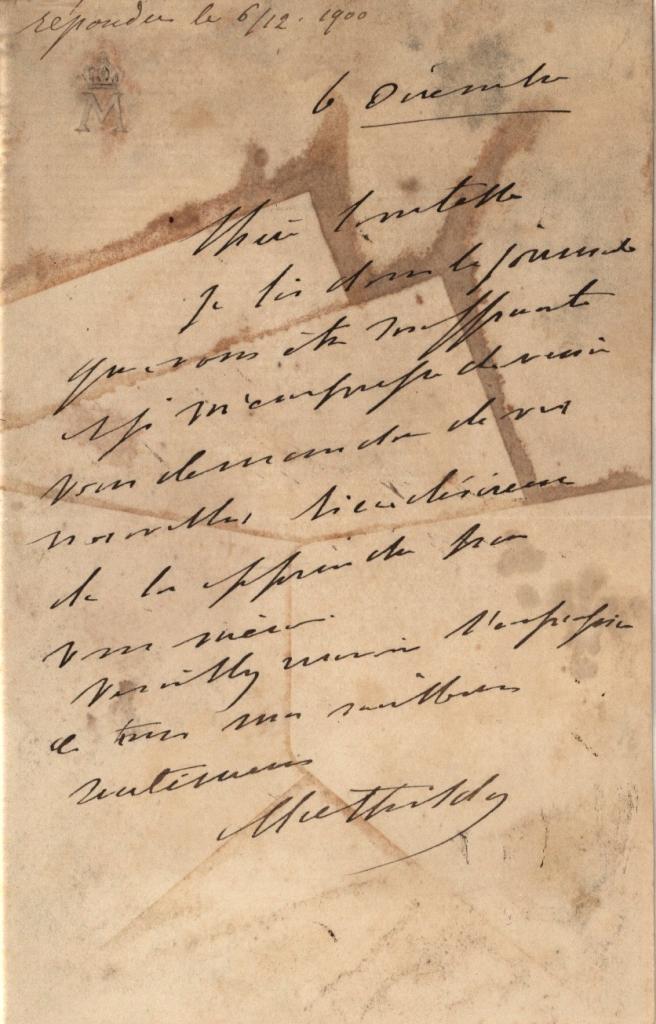 répondu le 6/12. 1900
M
6 Décembre
Chère Comtesse
je lis dans le journal
que vous êtes souffrante
et je m'empresse de venir
vous demander de vos
nouvelles bien désireuse
de les apprendre par
vous même.
Veuillez recevoir l'expression
de tous mes meilleurs
sentiments
Mathilde